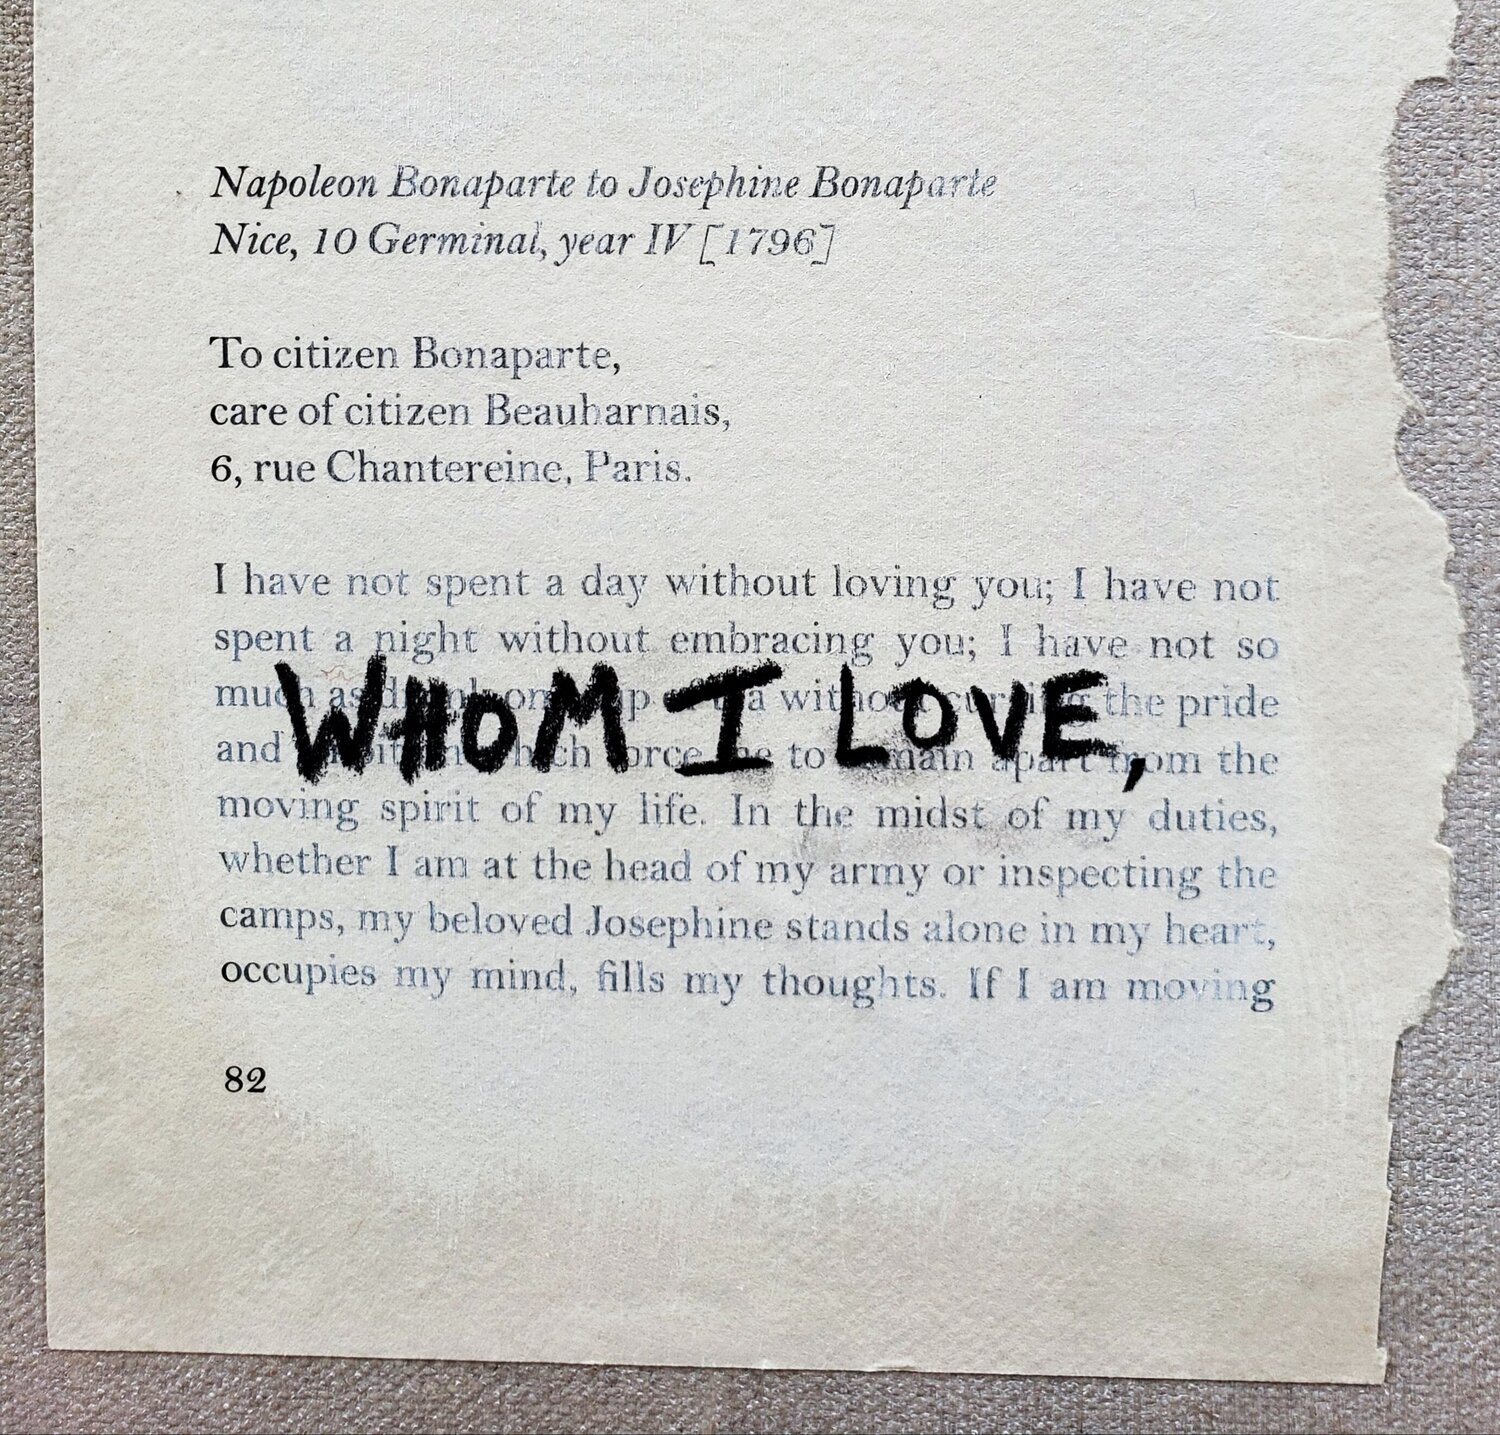 Napoleon Bonaparte to Josephine Bonaparte
Nice, 10 Germinal, year IV [1796]
To citizen Bonaparte,
care of citizen Beauharnais,
6, rue Chantereine, Paris.
I have not spent a day without loving you; I have not
spent a night without embracing you; I have not so
much as the pride
WHOM I LOVE,
and to apart from the
moving spirit of my life. In the midst of my duties,
whether I am at the head of my army or inspecting the
camps, my beloved Josephine stands alone in my heart,
occupies my mind, fills my thoughts. If I am moving
82